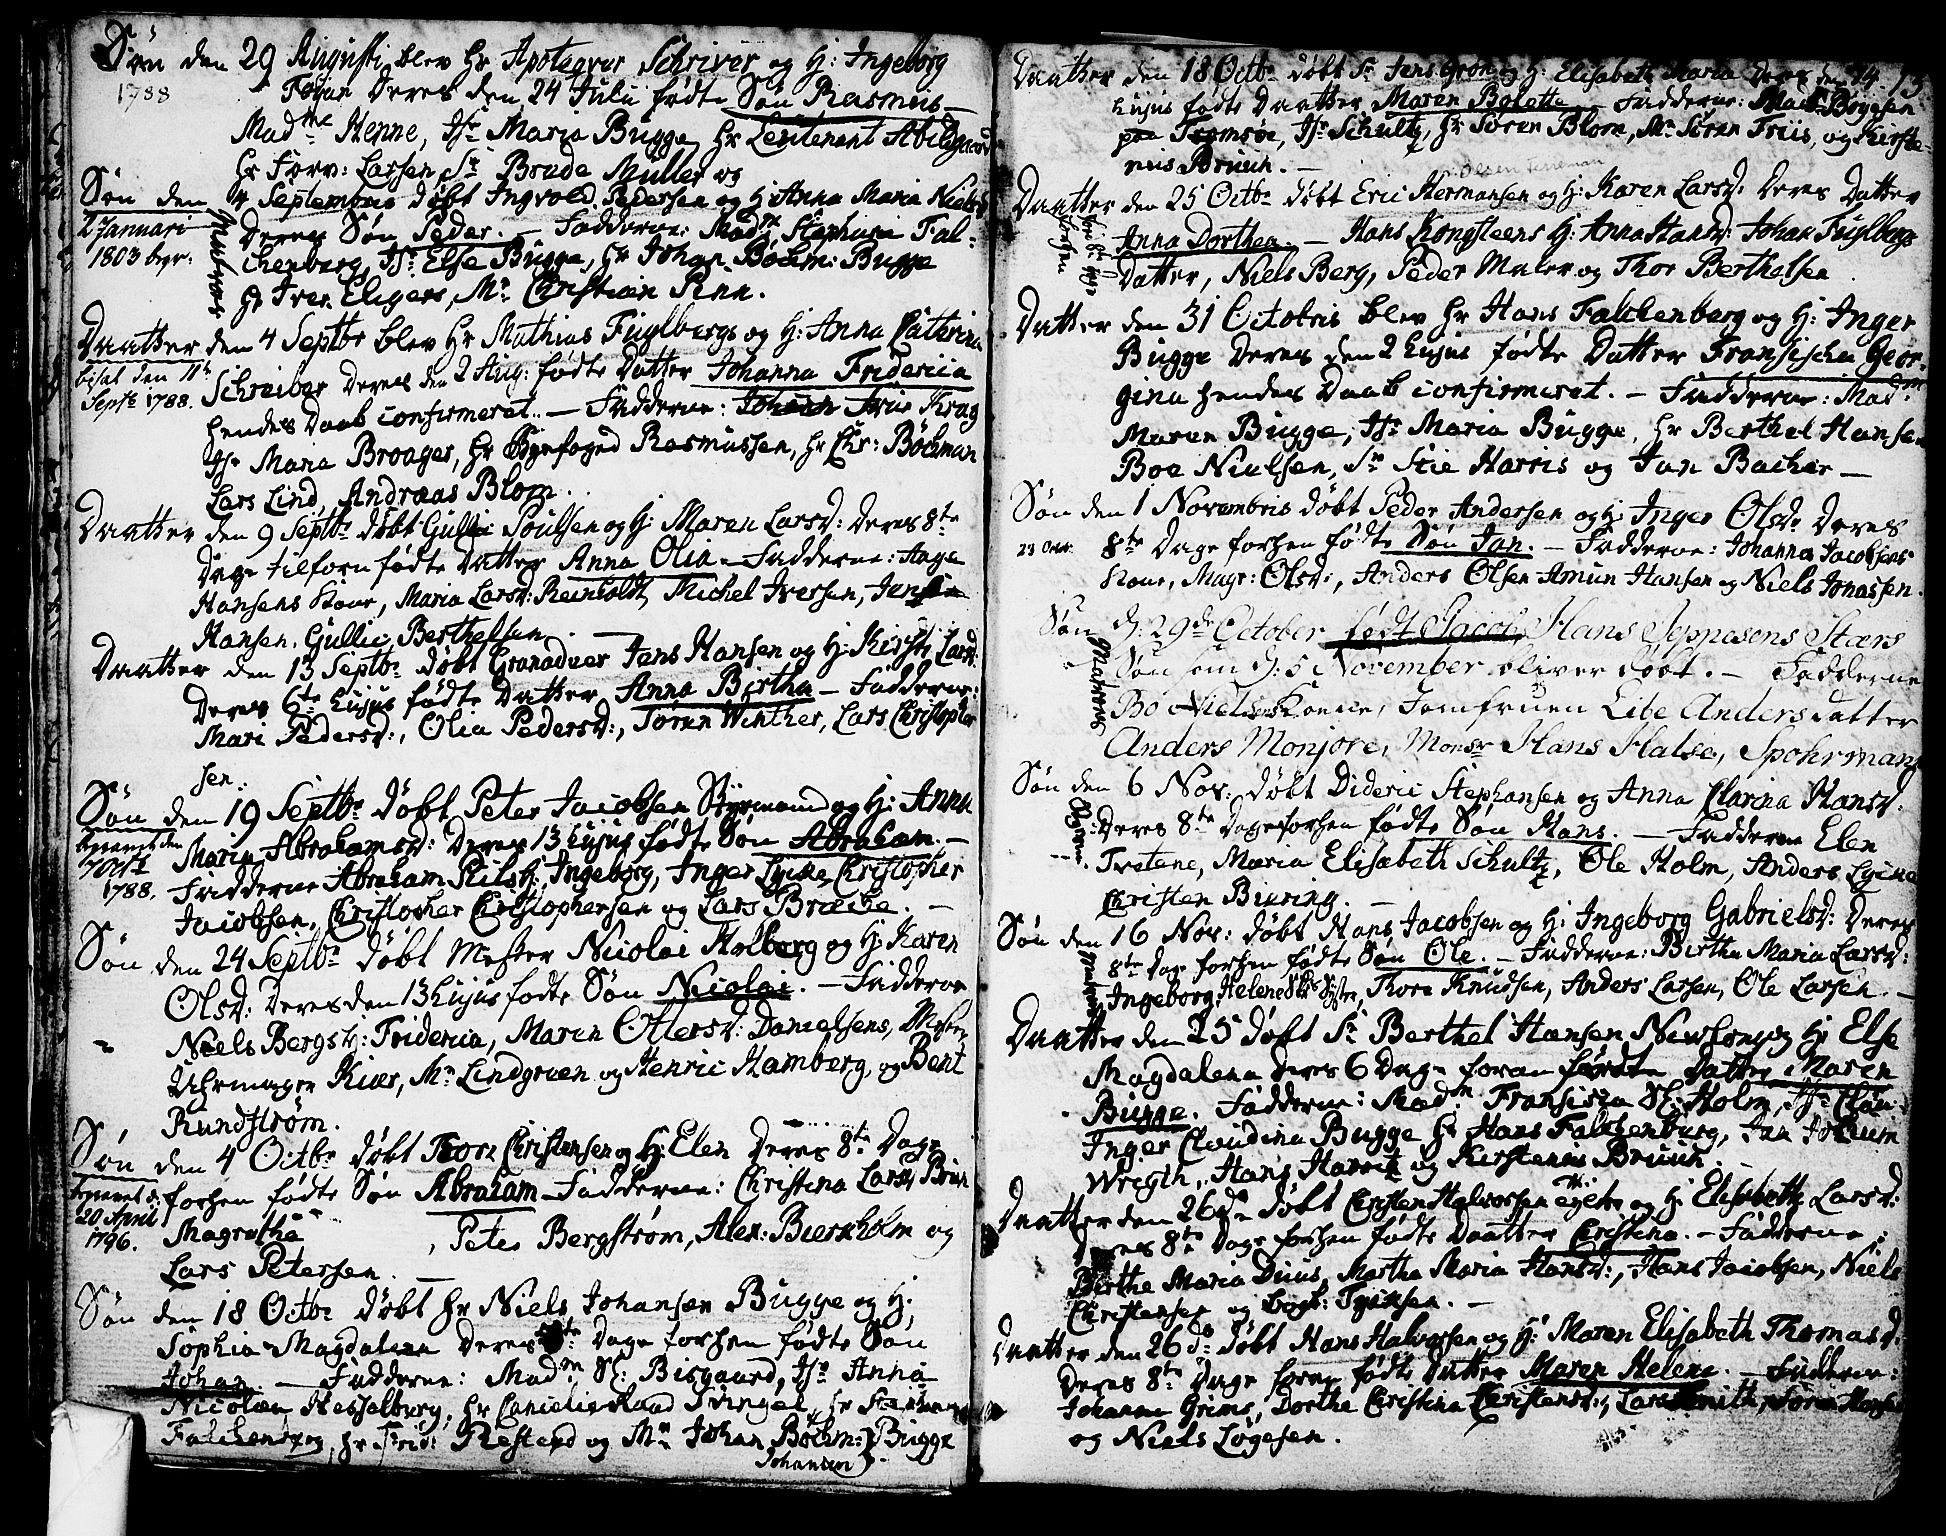 Søn den 29 Augusti blev Hr Apoteqver Schriver og H: Ingeborg
1788
Deres den 24 Julii fødte Søn Rasmus —
Madme Henne, Jfr Maria Bugge, Hr Leutenant Abildgaard
Hr Forv: Larsen, Sr Brude Müller og
Søn den 4 Septembris døbt Ingvold Pedersen og H: Anna Maria Nielsd
2 Januari
1803 begr:
Deres Søn Peder. — Fadderne: Madme Stephania Fal-
chenberg, Jfr Else Bugge, Hr Johan Bøchm: Bugge
Hr Iver Eligers, Mr Christian Finn.
Daatter den 4 Septbr blev Hr Mathias Fuylbergs og H: Anna Caterina
bisat den 11te
Septb 1788.
Schreiber Deres den 2 Aug: fødte Datter Johanna Fridericia
hendes Daab confirmeret. — Fadderne: Johann Friis Krag
Jfr Maria Broager, Hr Byefoged Rasmussen, Hr Chr: Böckman
Lars Lind, Andreas Blom.
Daatter den 9 Septbr døbt Gullic Poulsen og H: Maren Larsd: Deres 8te
Dage tilforn fødte Datter Anna Olia — Fadderne: Aage
Hansens Kone, Maria Larsd: Reinholdt, Michel Iversen, Jens
Hansen, Gullic Berthelsen.
Daatter den 13 Septbr døbt Granadeer Jens Hansen og H: Kirsti Larsd:
Deres 6te hujus fødte Datter Anna Birtha — Fadderne:
Mari Pedersd:, Olia Pedersd:, Søren Winther, Lars Christopher
sen.
Søn den 19 Septbr døbt Peter Jacobsen Styrmand og H: Anna
begravet den
7 Octb
1788.
Maria Abrahamsd: Deres 13 hujus fødte Søn Abraham. —
Fadderne Abraham Pihls H: Ingeborg, Inger Lycke, Christopher
Jacobsen, Christopher Christophersen og Lars Bracke. —
Søn den 24 Septbr døbt Mester Nicolai Holberg og H: Karen
Olsd: Deres den 13 hujus fødte Søn Nicolai. — Fadderne
Niels Bergs H: Fridericia, Maren Ottersd: Danielsens, Mester
Uhrmager Kiær, Mr Lindgreen og Henric Hamberg, og Bent
Rundstrøm.
Søn den 4 Octbr døbt Thore Christensen og H: Elen Deres 8te Dage
begravet d:
20 April
1796.
forhen fødte Søn Abraham — Fadderne: Christina Larsd Bruun
Magrethe , Peter Bergstrøm, Alex: Biernholm og
Lars Petersen. —
Søn den 18 Octbr døbt Hr Niels Johansen Bugge og H:
Sophia Magdalena Deres 8te Dage forhen fødte Søn
Johan — Fadderne: Madm Sl: Bisgaard, Jfr Anna
Nicolea Hesselburg, Hr Cornelis Raad Svingel, Hr
Falchenberg, Hr Frid: Resteed og Mr Johan Bøchm: Bugge
Johansen.
Daatter den 18 Octbr døbt Sr Jens Grøn og H: Elisabeth Maria Deres den 14. 13
hujus fødte Daatter Maren Bolette — Fadderne: Mad: Boyesen
paa Tromsøe, Jfr Schultz, Hr Søren Blom, Mr Søren Friis, og Kirste-
nius Bruun. —
Olsen Ferreman
Daatter den 25 Octbr døbt Eric Hermansen og H: Karen Larsd: Deres Datter
Anna Dorthea. — Hans Kongsteens H: Anna Hansd: Johan Fuylbergs
Datter, Niels Berg, Peder Maler og Thor Berthelsen
Datter den 31 Octobris blev Hr Hans Falchenberg og H: Inger
Bugge Deres den 2 hujus fødte Datter Fransischa Geor-
gina hendes Daab confirmeret. — Fadderne: Madm
Maren Bugge, Jfr Maria Bugge, Hr Berthel Hansen
Boe Nielsen, Sr Stie Harris og Jan Backer —
Søn den 1 Novembris døbt Peder Andersen og H: Inger Olsd: Deres
23 Octr
8te Dage forhen fødte Søn Jan. — Fadderne: Johanna Jacobsens
Kone, Magr: Olsd:, Anders Olsen Amun Hansen og Niels Jonassen.
Søn d: 29de October født Jacob, Hans Jeppesens Stærs
Søn som d: 5 November bliver døbt. — Fadderne
Bo Nielsens Konne, Jomfruen Libe Andersdatter
Anders Monsore, Monsr Hans Halse, Spohrmann
Søn den 6 Nov: døbt Dideric Stephansen og Anna Clarina Hansd:
Deres 8te Dage forhen fødte Søn Hans. — Fadderne Elen
Tvetene, Maria Elisabeth Schultz, Ole Holm, Anders Lycke
Christen Biuring. —
Søn den 16 Nov: døbt Hans Jacobsen og H: Ingeborg Gabrielsd: Deres
8te Dage forhen fødte Søn Ole. — Fadderne: Birtha Maria Larsd:
Ingeborg, Helene, Thore Knudsen, Anders Larsen, Ole Larsen. —
Daatter den 25 døbt Sr Berthel Hansen Niewsong og H: Else
Magdalena Deres 6 Dage foran fødte Datter Maren
Bugge. Fadderne: Madm Fransisca Sl: Holm, Jfr Clau
Inger Claudina Bugge Hr Hans Falchenburg, Jan Jochum
Wrigth, Hans Harris og Kirstenius Bruun
Daatter den 26de døbt Christen Halvorsen og H: Elisabeth Larsd:
Deres 8te Dage forhen fødte Daatter Christina. — Fadderne:
Birthe Maria Duus, Martha Maria Hansd:, Hans Jacobsen, Niels
Christensen og Tygesen. —
Daatter den 26de døbt Hans Halvorsen og H: Maren Elisabeth Thomasd:
Deres 8te Dage foran fødte Datter Maren Helena. — Fadderne:
Johanna Grims, Dorthe Christina Christensd:, Lars Smith, Søren Hansen
og Niels Løgesen.